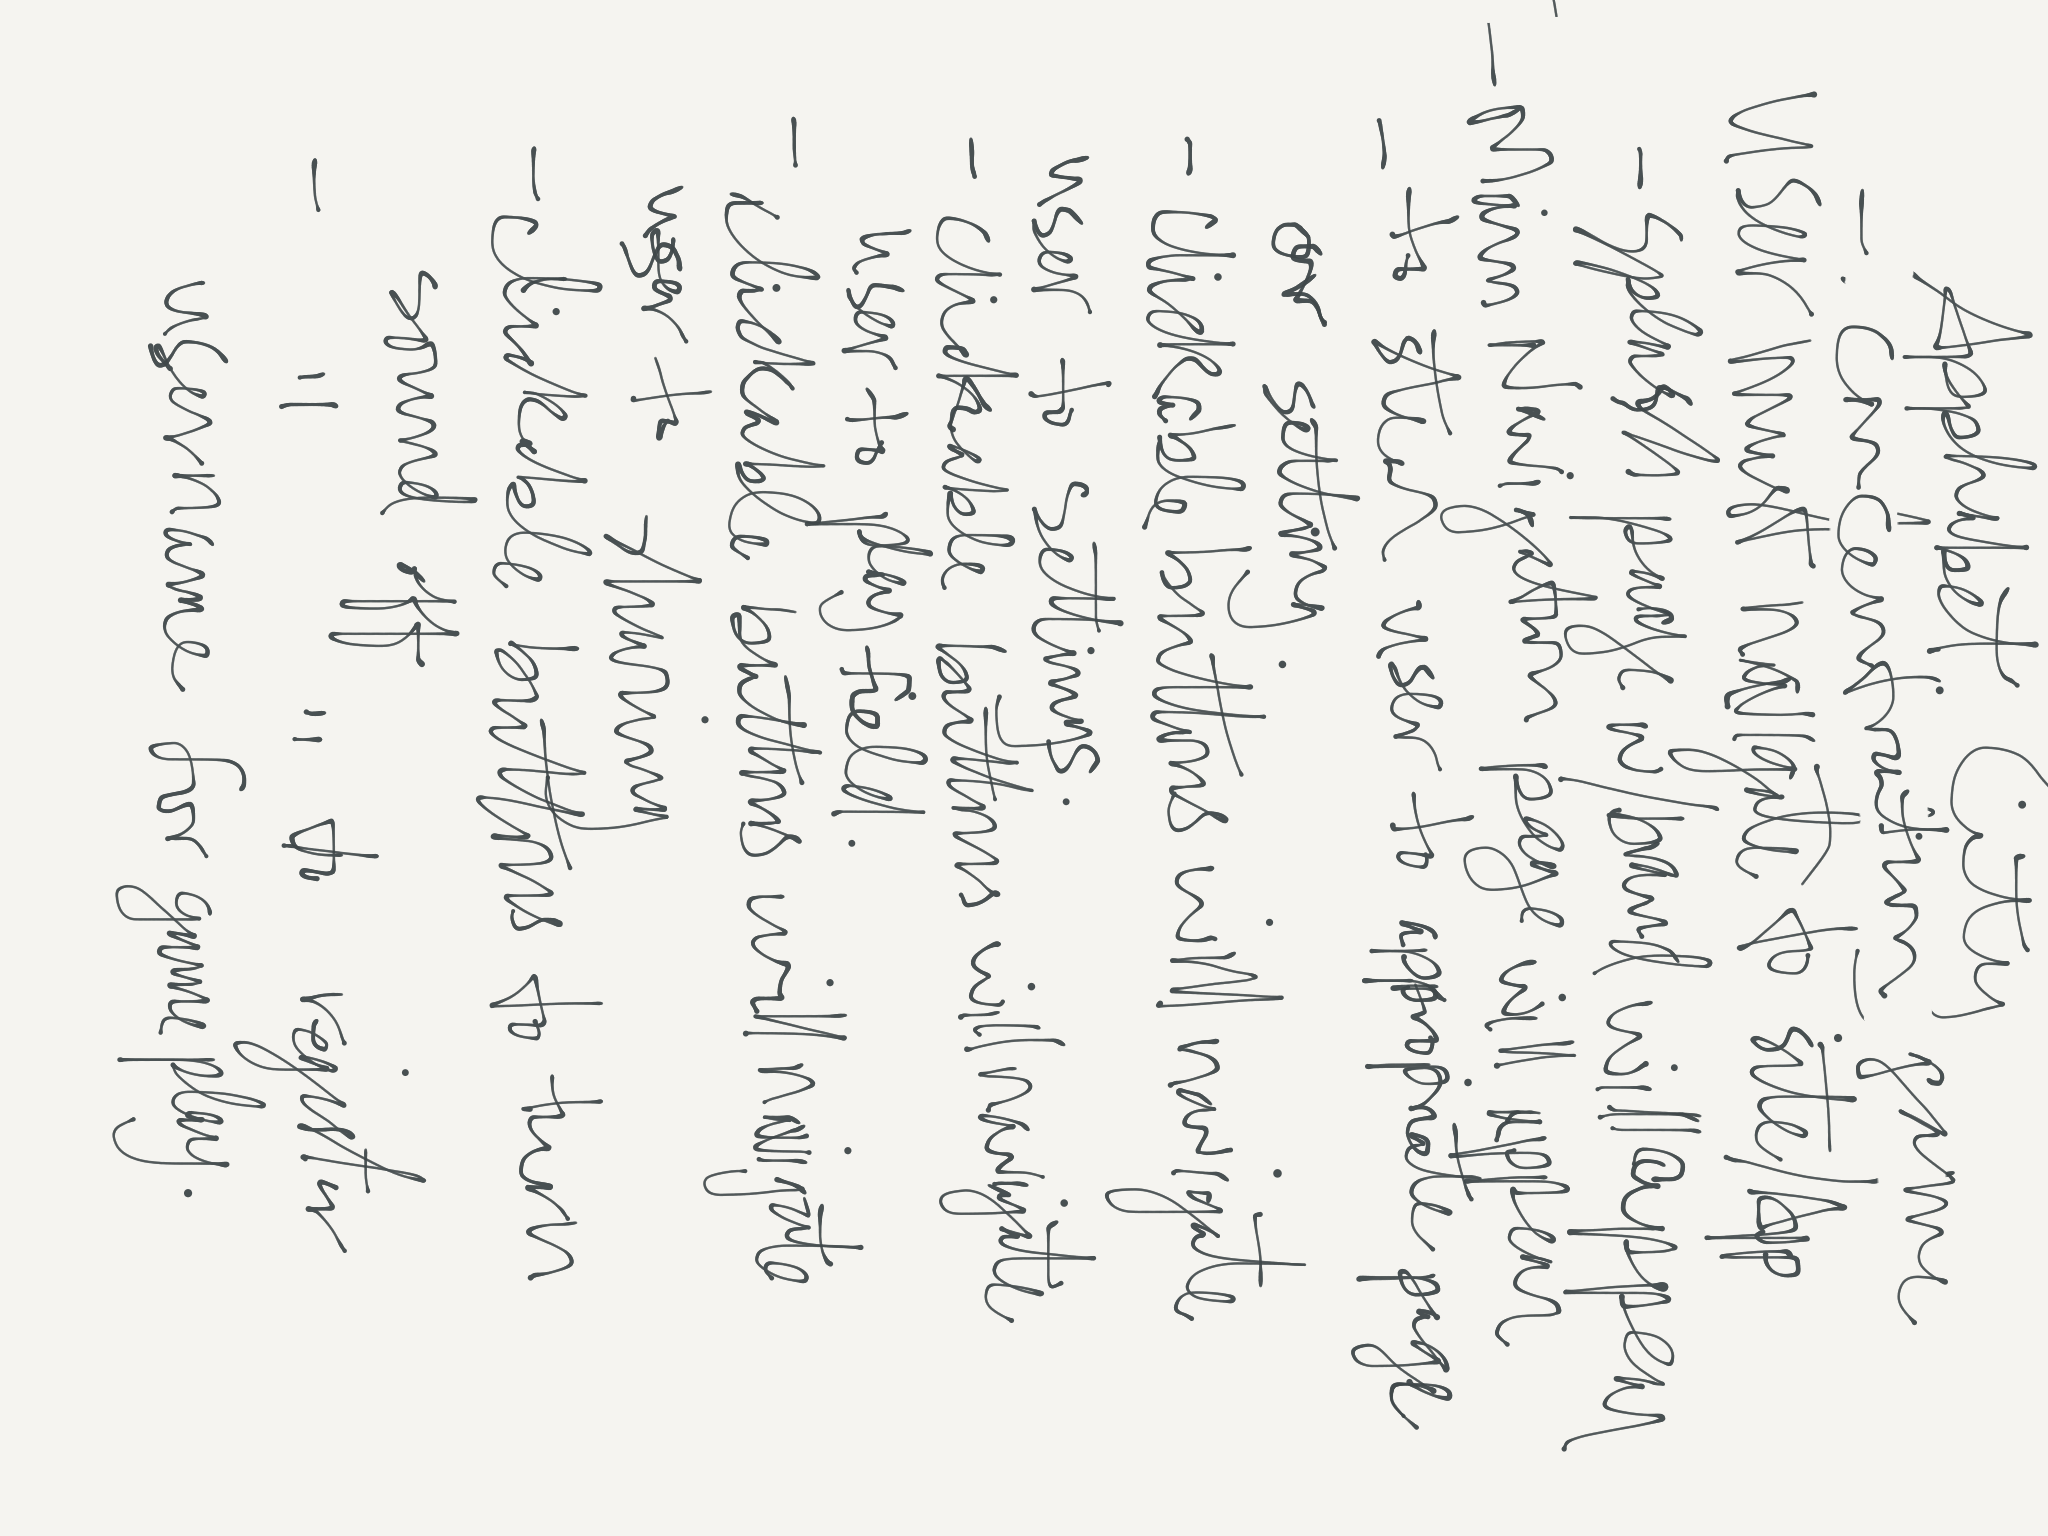 Alphabet City Game
- Concentration
User Must Navigate to site/app
- Splash page w/ brand will appear
- Main Navigation Page will appear
- to steer user to appropriate page
or setting
- Clickable buttons will navigate
user to settings.
- Clickable buttons will navigate
user to play field.
- Clickable buttons will navigate
user to
- Clickable buttons to turn
sound off
- " " to register
username for game play.